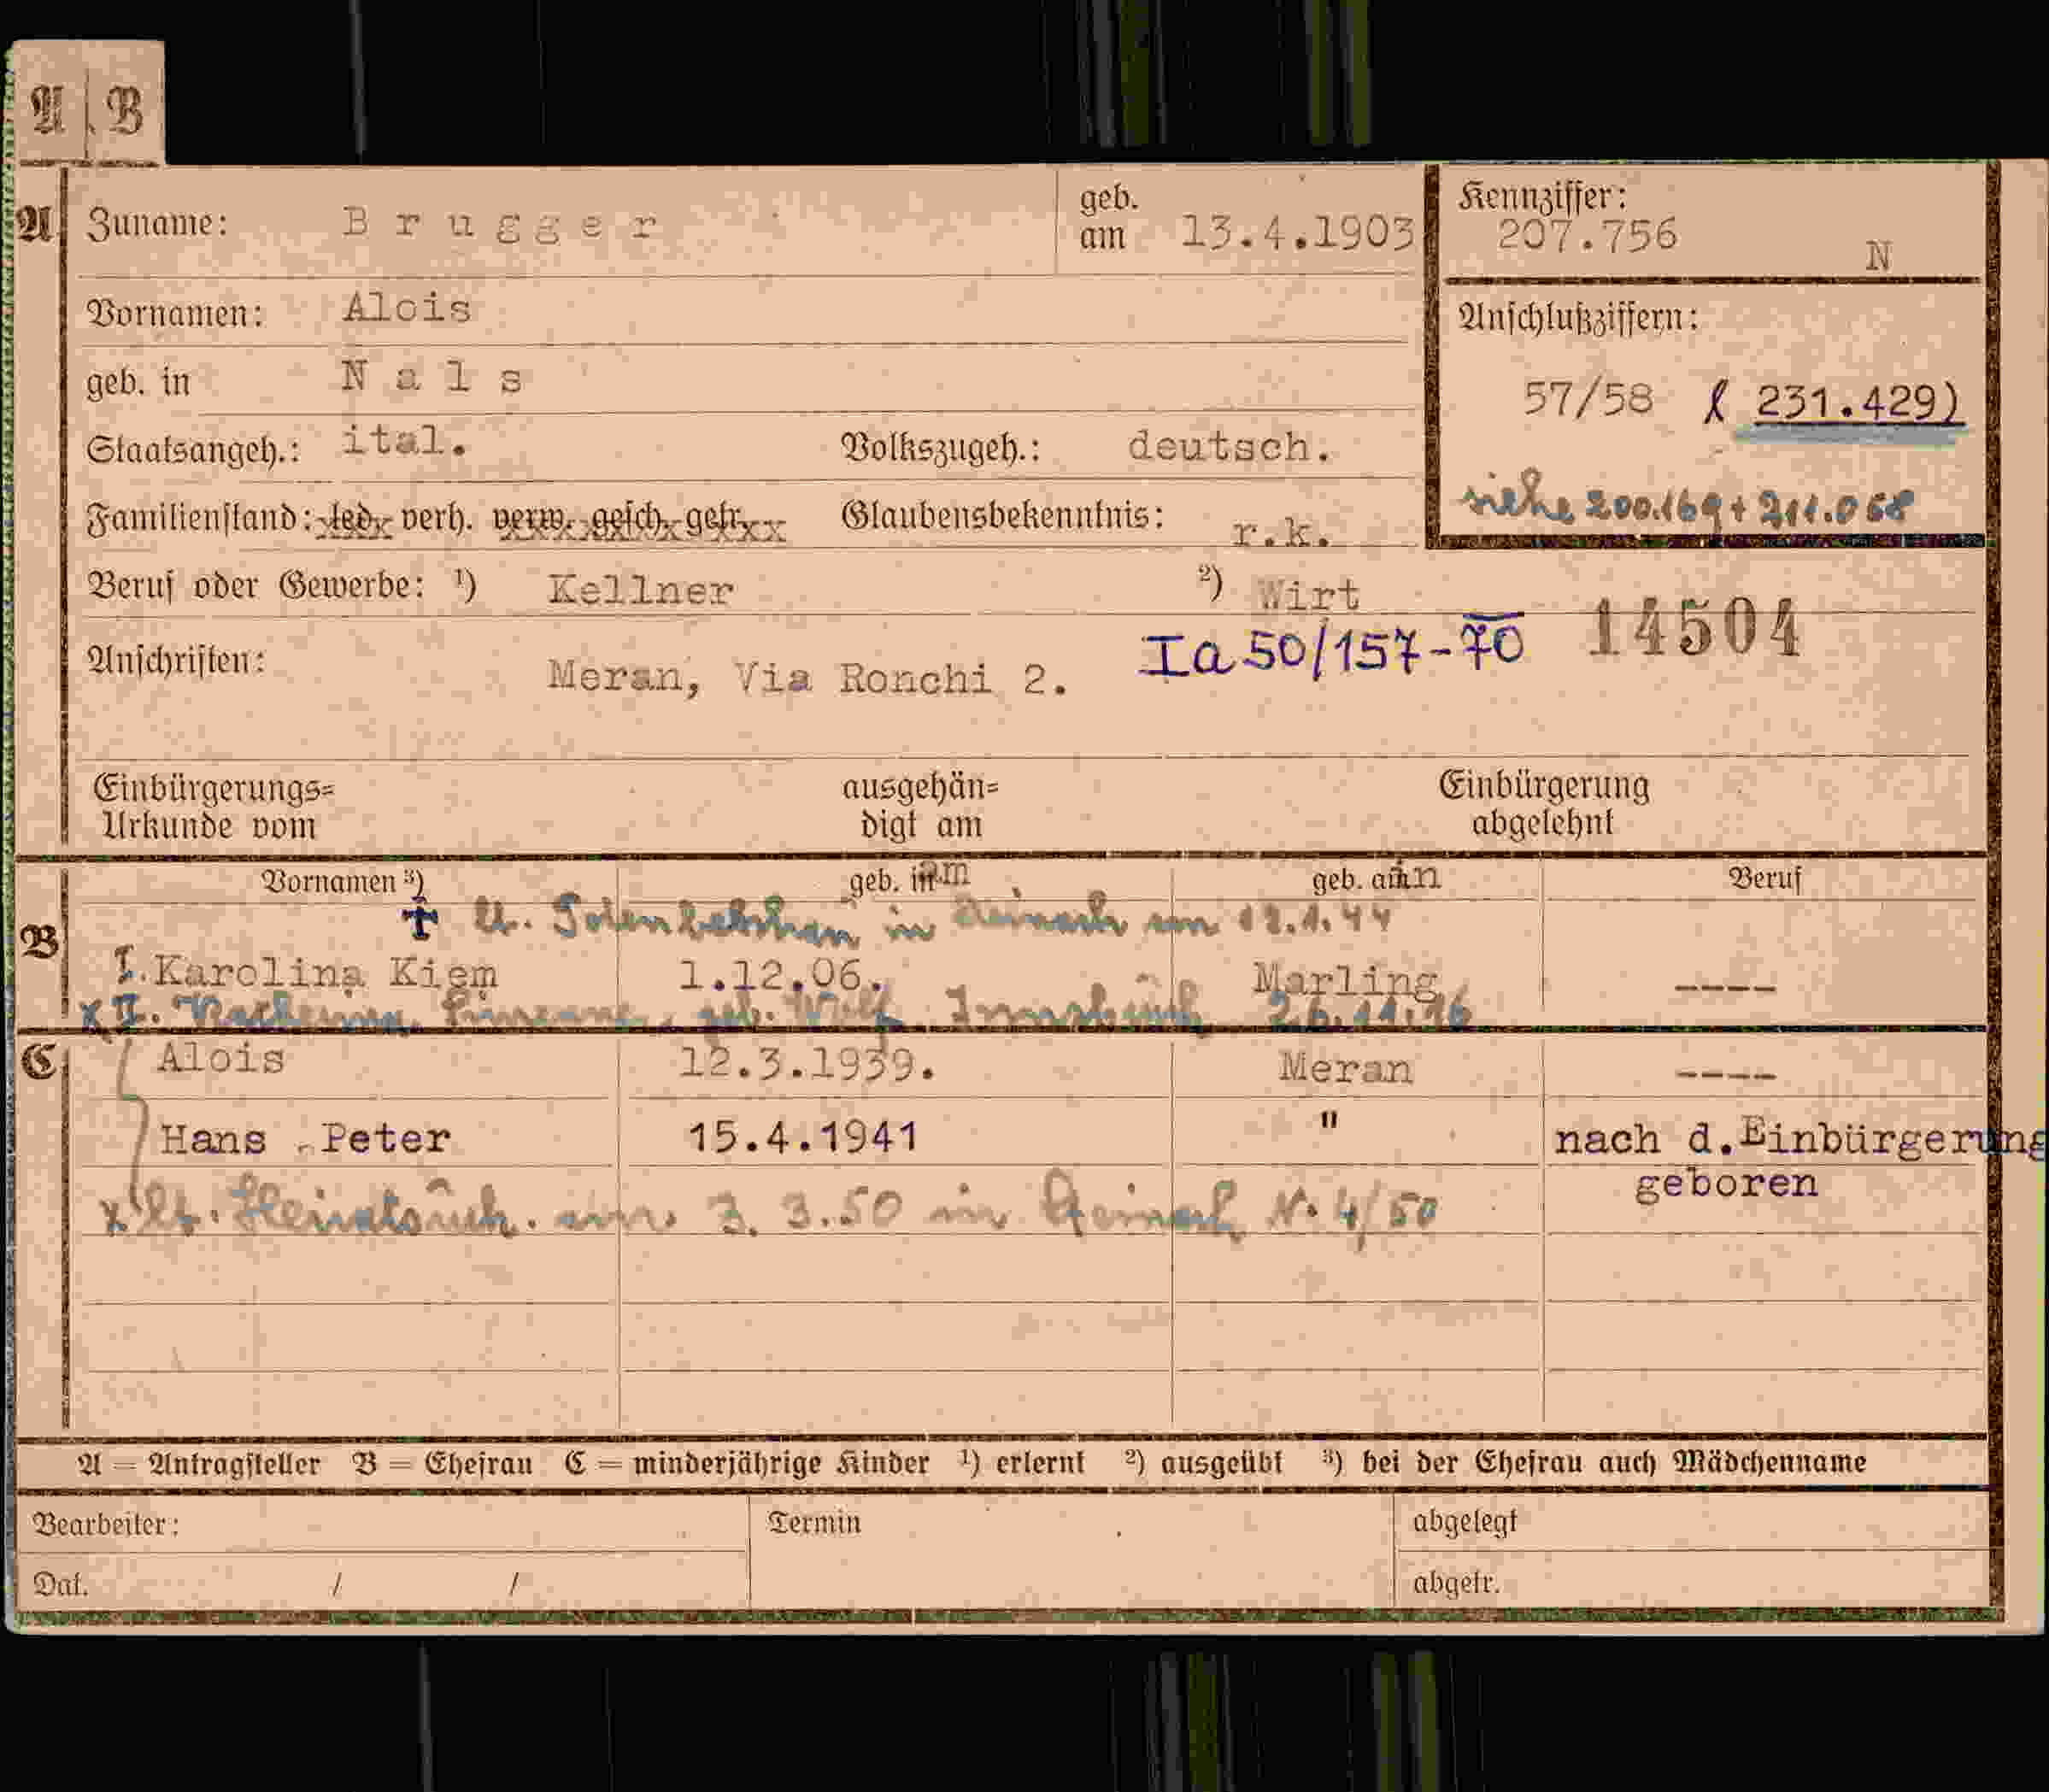 A B
A Zuname: Brugger geb. am 13.4.1903 Kennziffer: 207.756 N
Vornamen: Alois Anschlußziffern:
geb. in Nals 57/58 ( 231.429)
Staatsangeh.: ital. Volkszugeh.: deutsch.
siehe 200.169 + 211.068
Familienstand: led. verh. verw. gesch. getr. Glaubensbekenntnis: r.k.
Beruf oder Gewerbe: 1) Kellner 2) Wirt
Anschriften: Meran, Via Ronchi 2. Ia 50/157-70 14504
Einbürgerungs= ausgehän= Einbürgerung
Urkunde vom digt am abgelehnt
B Vornamen 3) geb. am geb. in Beruf
† lt. in am 12.1.44
I. Karolina Kiem 1.12.06. Marling ----
x II. geb. Wolf Innsbruck 26.11.16
C Alois 12.3.1939. Meran ----
Hans Peter 15.4.1941 " nach d.Einbürgerung
geboren
x lt. am 3.3.50 in N. 4/50
A = Antragsteller B = Ehefrau C = minderjährige Kinder 1) erlernt 2) ausgeübt 3) bei der Ehefrau auch Mädchenname
Bearbeiter: Termin abgelegt
Dat. / / abgetr.